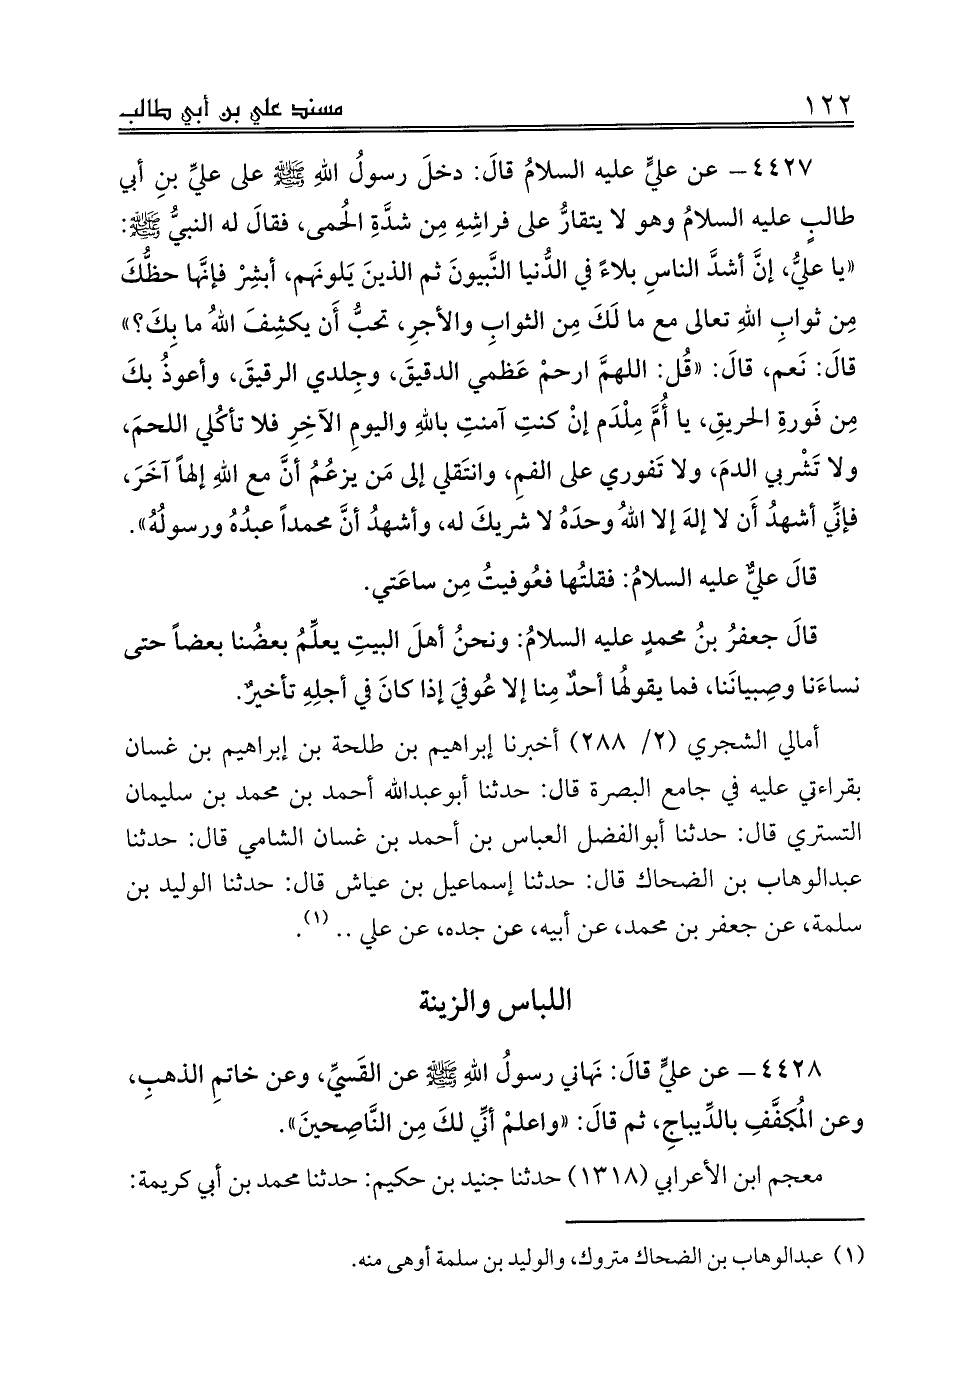 ١٢٢ مسند علي بن أبي طالب
٤٤٢٧ – عن عليٍّ عليه السلامُ قالَ: دخلَ رسولُ اللهِ ﷺ على عليِّ بنِ أبي
طالبٍ عليه السلامُ وهو لا يتقارُّ على فراشِهِ مِن شدَّةِ الحُمى، فقالَ له النبيُّ ﷺ:
«يا عليُّ، إنَّ أشدَّ الناسِ بلاءً في الدُّنيا النَّبيونَ ثم الذينَ يَلونَهم، أبشِرْ فإنَّها حظُّكَ
مِن ثوابِ اللهِ تعالى مع ما لَكَ مِن الثوابِ والأجرِ، تحبُّ أَن يكشِفَ اللهُ ما بِكَ؟»
قالَ: نَعم، قالَ: «قُل: اللهمَّ ارحمْ عَظمي الدقيقَ، وجِلدي الرقيقَ، وأعوذُ بكَ
مِن فَورةِ الحريقِ، يا أُمَّ مِلْدَم إنْ كنتِ آمنتِ باللهِ واليومِ الآخِرِ فلا تأكُلي اللحمَ،
ولا تَشْربي الدمَ، ولا تَفوري على الفمِ، وانتَقلي إلى مَن يزعُمُ أنَّ مع اللهِ إلهاً آخَرَ،
فإنِّي أشهدُ أَن لا إلهَ إلا اللهُ وحدَهُ لا شريكَ له، وأشهدُ أنَّ محمداً عبدُهُ ورسولُهُ».
قالَ عليٌّ عليه السلامُ: فقلتُها فعُوفيتُ مِن ساعَتي.
قالَ جعفرُ بنُ محمدٍ عليه السلامُ: ونحنُ أهلَ البيتِ يعلِّمُ بعضُنا بعضاً حتى
نساءَنا وصِبيانَنا، فما يقولُها أحدٌ مِنا إلا عُوفيَ إذا كانَ في أجلِهِ تأخيرٌ.
أمالي الشجري (٢/ ٢٨٨) أخبرنا إبراهيم بن طلحة بن إبراهيم بن غسان
بقراءتي عليه في جامع البصرة قال: حدثنا أبوعبدالله أحمد بن محمد بن سليمان
التستري قال: حدثنا أبوالفضل العباس بن أحمد بن غسان الشامي قال: حدثنا
عبدالوهاب بن الضحاك قال: حدثنا إسماعيل بن عياش قال: حدثنا الوليد بن
سلمة، عن جعفر بن محمد، عن أبيه، عن جده، عن علي .. (١).
اللباس والزينة
٤٤٢٨ – عن عليٍّ قالَ: نَهاني رسولُ اللهِ ﷺ عن القَسيِّ، وعن خاتمِ الذهبِ،
وعن المُكفَّفِ بالدِّيباجِ، ثم قالَ: «واعلمْ أنِّي لكَ مِن النَّاصِحينَ».
معجم ابن الأعرابي (١٣١٨) حدثنا جنيد بن حكيم: حدثنا محمد بن أبي كريمة:
(١) عبدالوهاب بن الضحاك متروك، والوليد بن سلمة أوهى منه.